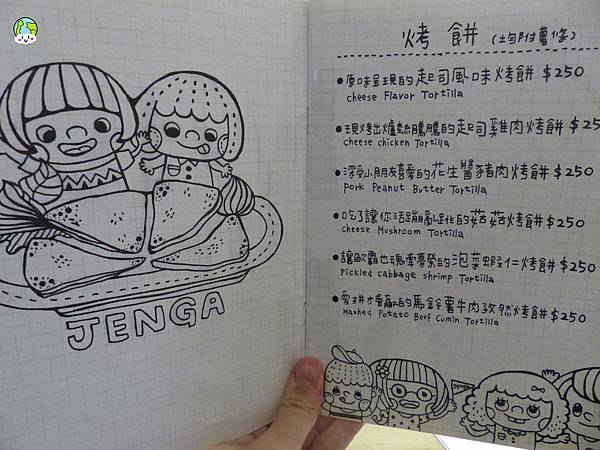 JENGA
烤餅 (均附薯條)
●原味呈現的起司風味烤餅 $250
cheese Flavor Tortilla
●現烤出爐熱騰騰的起司雞肉烤餅 $25
cheese chicken Tortilla
●深受小朋友喜愛的花生醬豬肉烤餅 $250
Pork Peanut Butter Tortilla
●吃了讓你活蹦亂跳的菇菇烤餅 $250
Cheese Mushroom Tortilla
●讓歐霸也魂牽夢縈的泡菜蝦仁烤餅 $250
Pickled cabbage shrimp Tortilla
●愛拼才會贏的馬鈴薯牛肉孜然烤餅 $250
Mashed Potato Beef Cumin Tortilla
JENGA